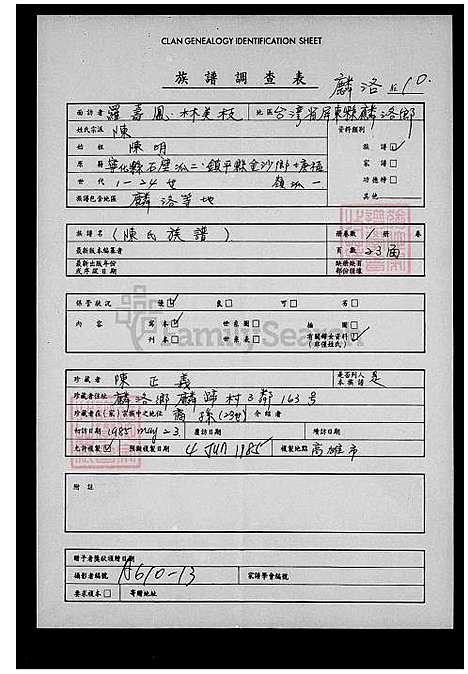 CLAN GENEALOGY IDENTIFICATION SHEET
族譜調查表 麟洛
面訪者 羅壽鳳·林美枝 地區 台灣省屏東縣麟洛鄉
姓氏宗派 陳 資料類別
始祖 陳明 族譜☑
原籍 寧化縣石壁 鎮平縣金沙鄉 家譜□
世代 1-24世 功德榜□
族譜包含地區 麟洛等地 其他
族譜名 (陳氏族譜) 冊卷數 1 冊 卷
最新版本編纂者 頁數 23面
最新出版年份或序跋日期 缺冊缺頁部份備壞
保管狀況 優☑ 良□ 可□ 劣□
內容 寫本☑ 世系圖□ 插圖□
刊本□ 世系表□ 有關婦女資料☑ (非僅姓氏)
FamilySearch
珍藏者 陳正義 是否列入本族譜 是
珍藏者住址 麟洛鄉麟蹄村3鄰163號
珍藏者在(家)宗族中之地位 裔孫(23世) 介紹者
初訪日期 1985 may 23 覆訪日期 續訪日期
允許複製☑ 預擬複製日期 4 JUN 1985 複製地點 高雄市
附註
贈予者獎狀頒贈日期
攝影者編號 A610-13 家譜學會編號
要求複本□ 寄贈地址